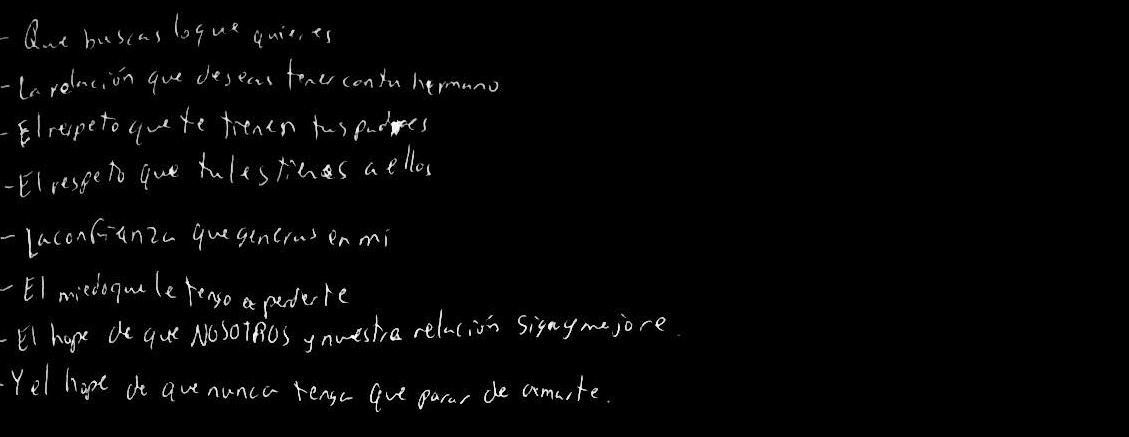 - Que buscas lo que quieres
- La relación que deseas tener con tu hermano
- El respeto que te tienen tus padres
- El respeto que tu les tienes a ellos
- La confianza que generas en mi
- El miedo que le tengo a perderte
- El hope de que NOSOTROS y nuestra relación siga y mejore.
- Y el hope de que nunca tenga que parar de amarte.